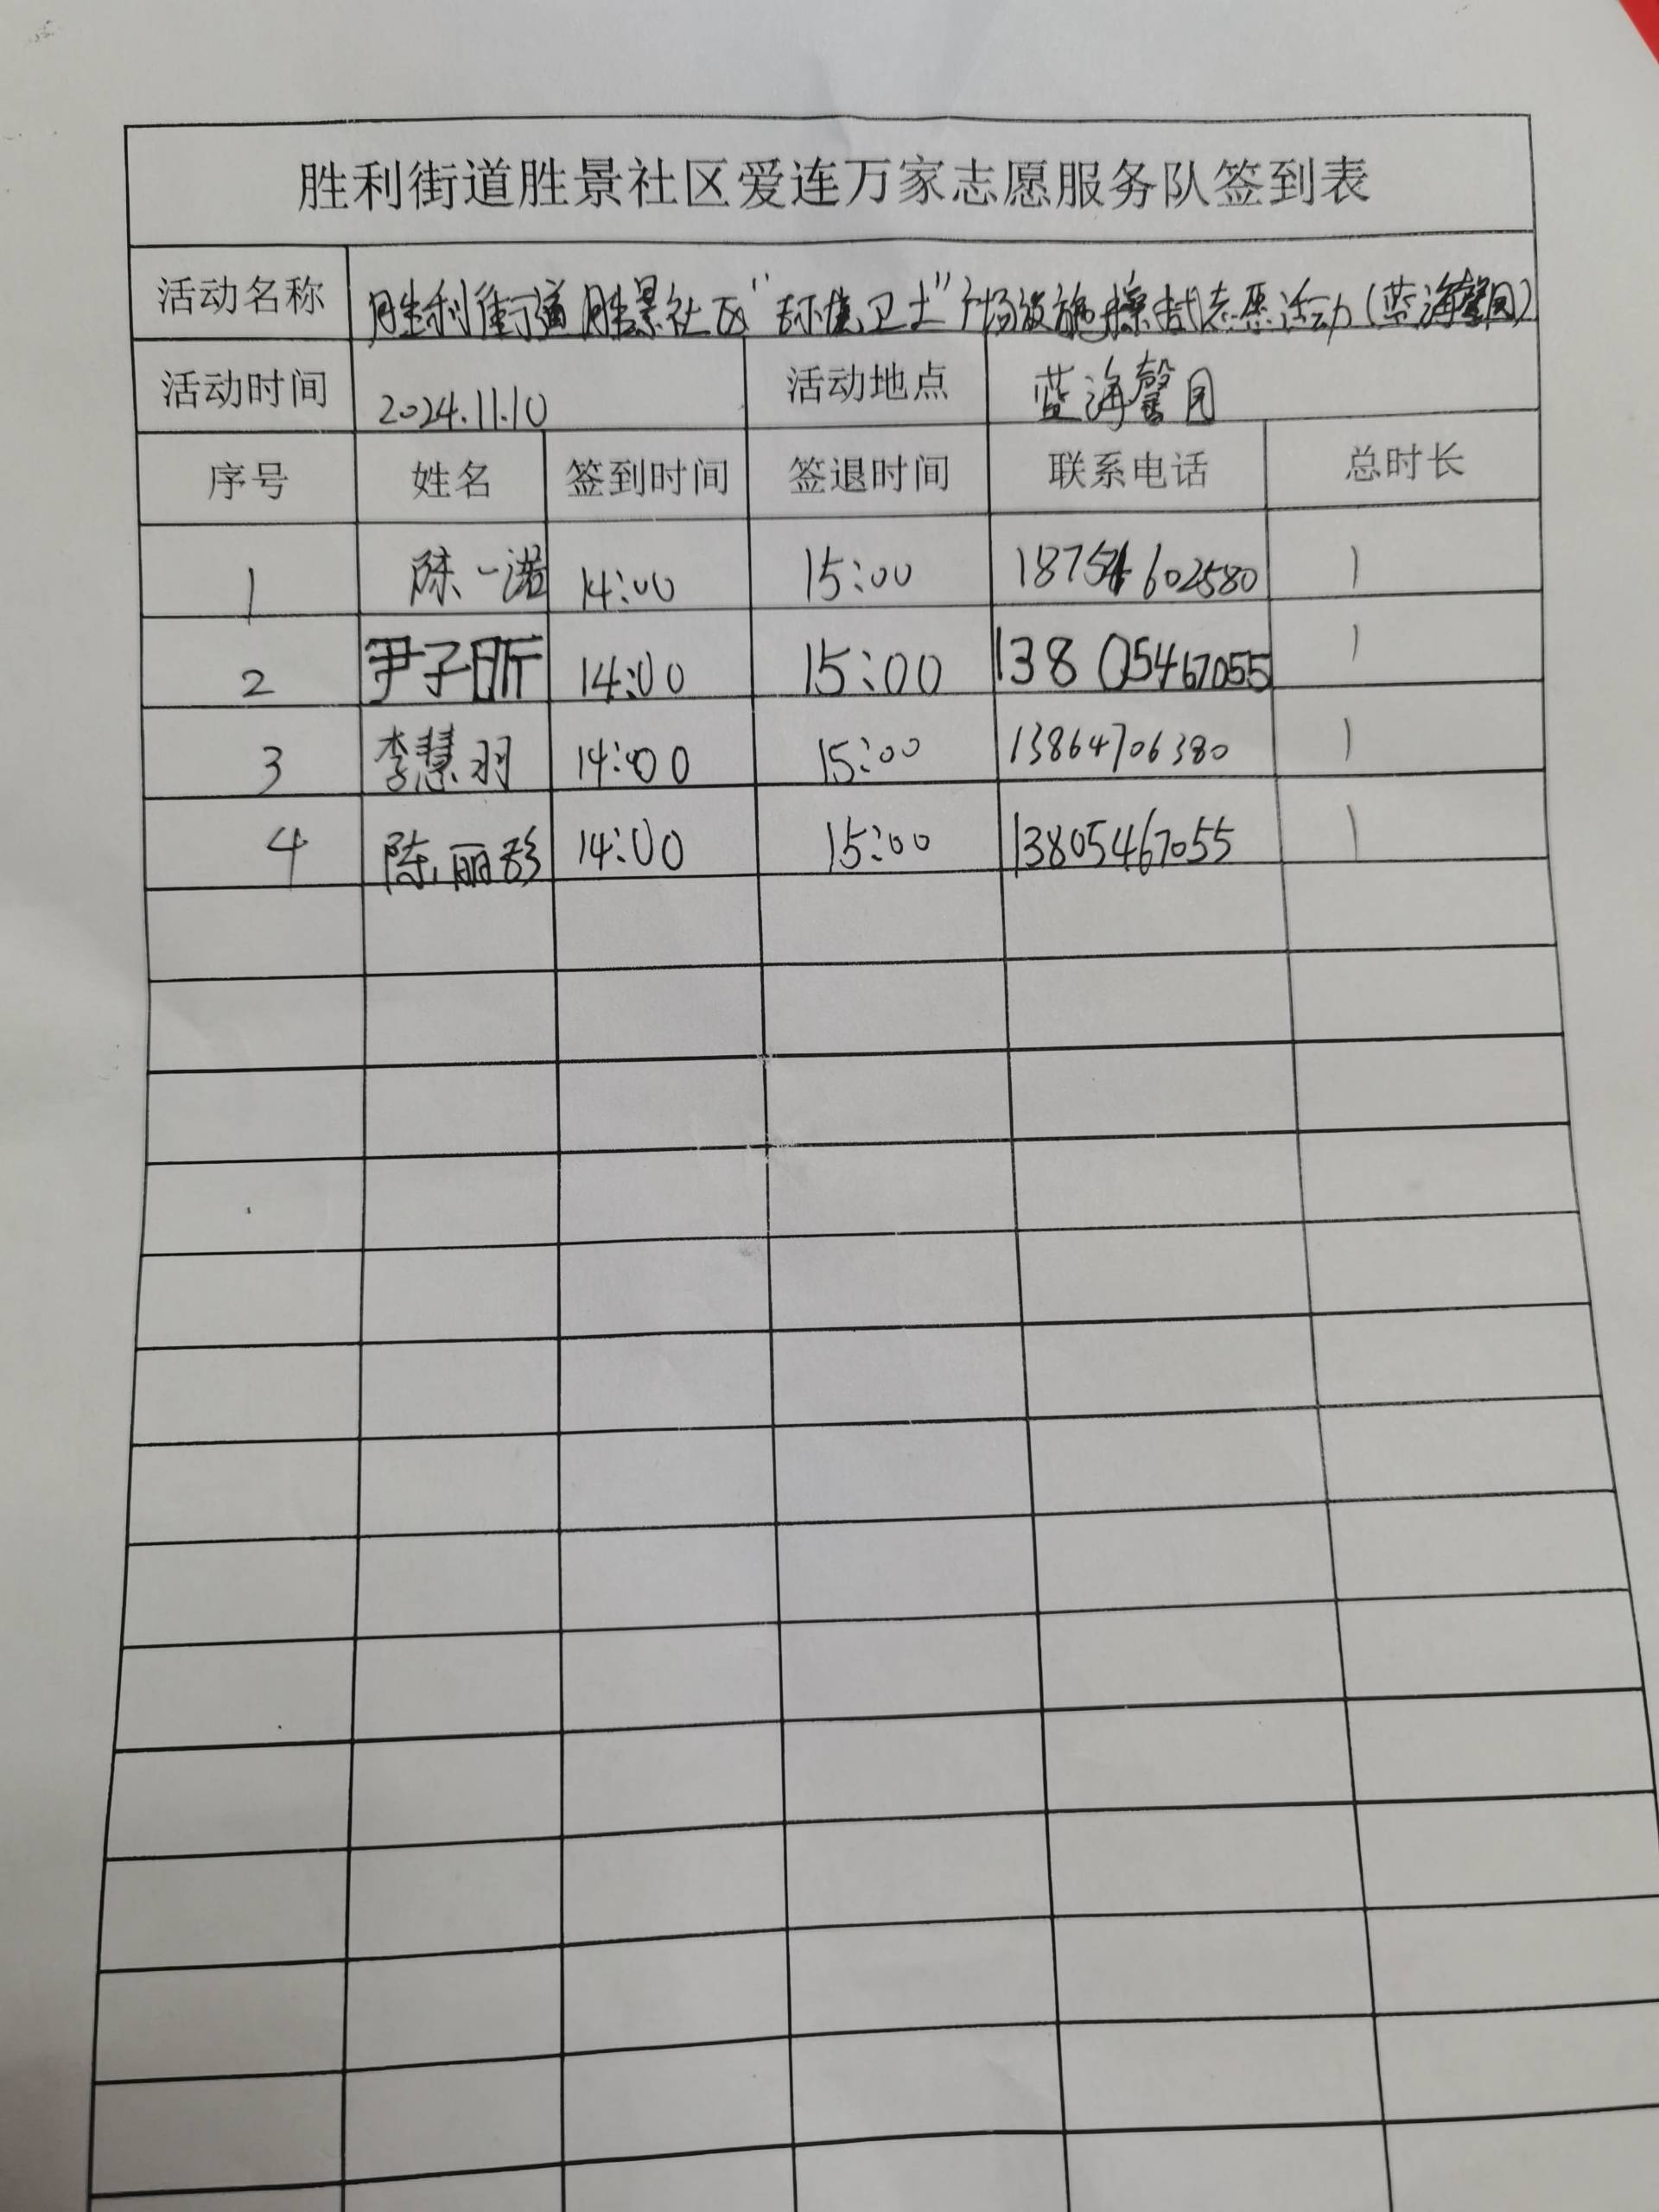 胜利街道胜景社区爱连万家志愿服务队签到表
活动名称 胜利街道胜景社区“环境卫士”广场设施擦拭志愿活动(蓝海馨园)
活动时间 2024.11.10 活动地点 蓝海馨园
序号 姓名 签到时间 签退时间 联系电话 总时长
1 陈一诺 14:00 15:00 18754602580 1
2 尹子昕 14:00 15:00 13805467055 1
3 李慧羽 14:00 15:00 13864706380 1
4 陈丽彩 14:00 15:00 13805467055 1